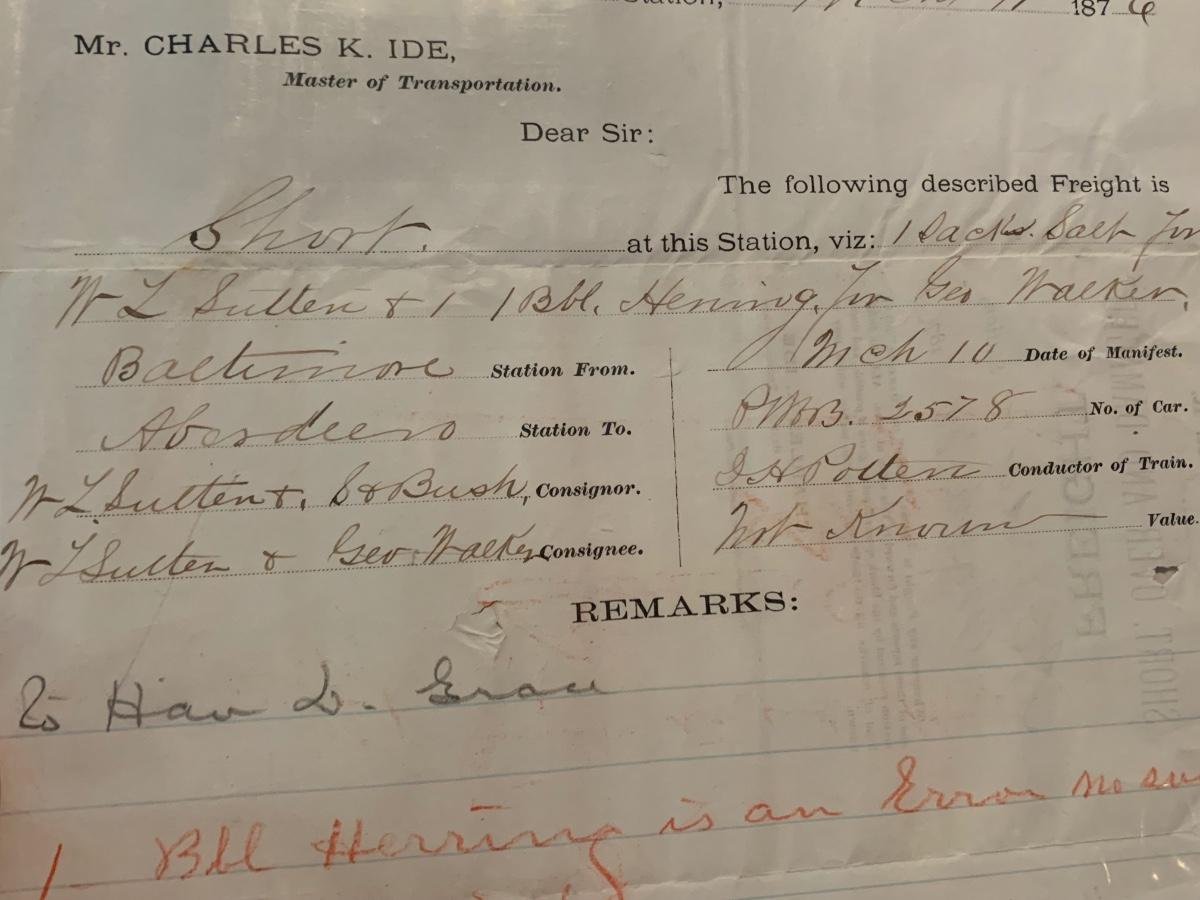 Station, 1876
Mr. CHARLES K. IDE,
Master of Transportation.
Dear Sir:
The following described Freight is
Short. at this Station, viz: 1 Sack Salt for
W L Sutten & 1 1 Bbl. Herring for Geo Walker,
Baltimore Station From. Mch 10 Date of Manifest.
Aberdeen Station To. PW&B. 2578 No. of Car.
W L Sutten &. S & Bush, Consignor. Conductor of Train.
W L Sutten & Geo Walker Consignee. Not Known Value.
REMARKS:
To Hav D. Grace
1 Bbl Herring is an Error no su